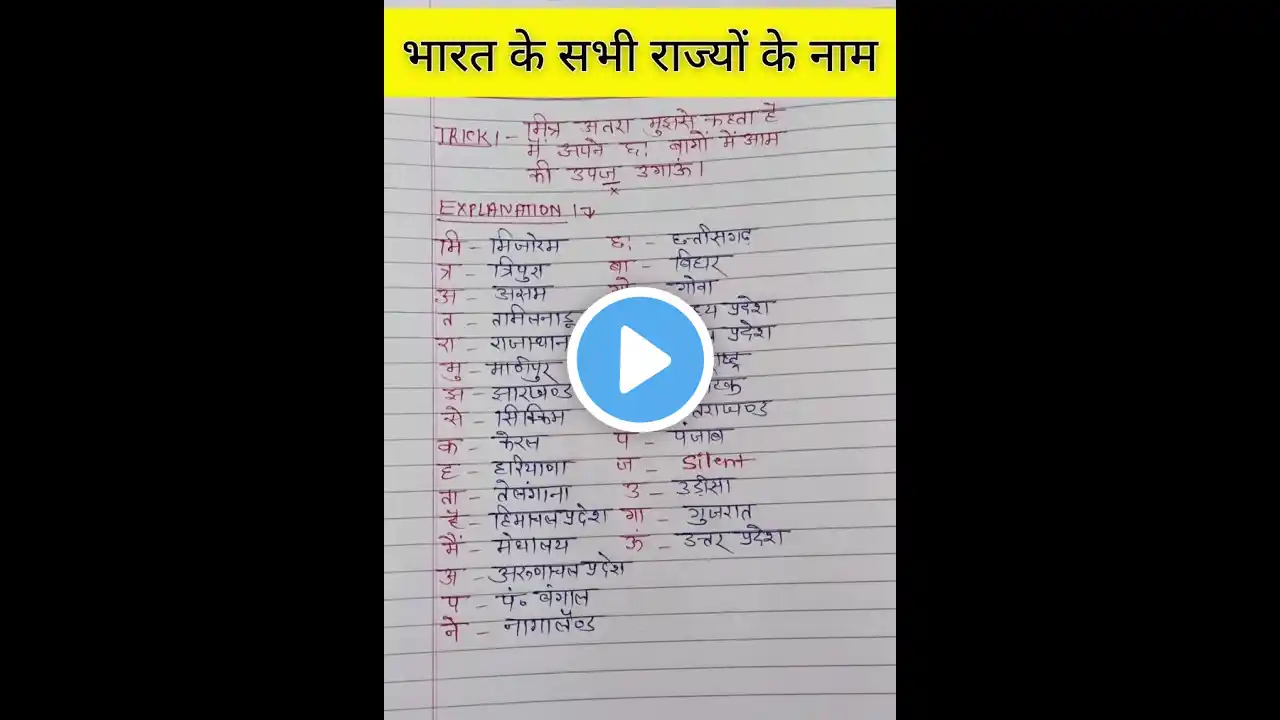 भारत के सभी राज्यों के नाम
TRICK 1 - मित्र अतरा मुझसे कहता है
मैं अपने छः बागों में आम
की उपज उगाऊं।
x
EXPLANATION 1
मि - मिजोरम
त्र - त्रिपुरा
अ - असम
त - तामिलनाडू
रा - राजस्थान
मु - मणीपुर
झ - झारखण्ड
से - सिक्किम
क - केरल
ह - हरियाणा
ता - तेलंगाना
है - हिमाचल प्रदेश
मैं - मेघालय
अ - अरुणाचल प्रदेश
प - पं॰ बंगाल
ने - नागालॅण्ड
छः - छत्तीसगढ़
बा - बिहार
गोवा
प्रदेश
प्रदेश
प - पंजाब
ज - Silent
उ - उड़ीसा
गा - गुजरात
ऊं - उत्तर प्रदेश